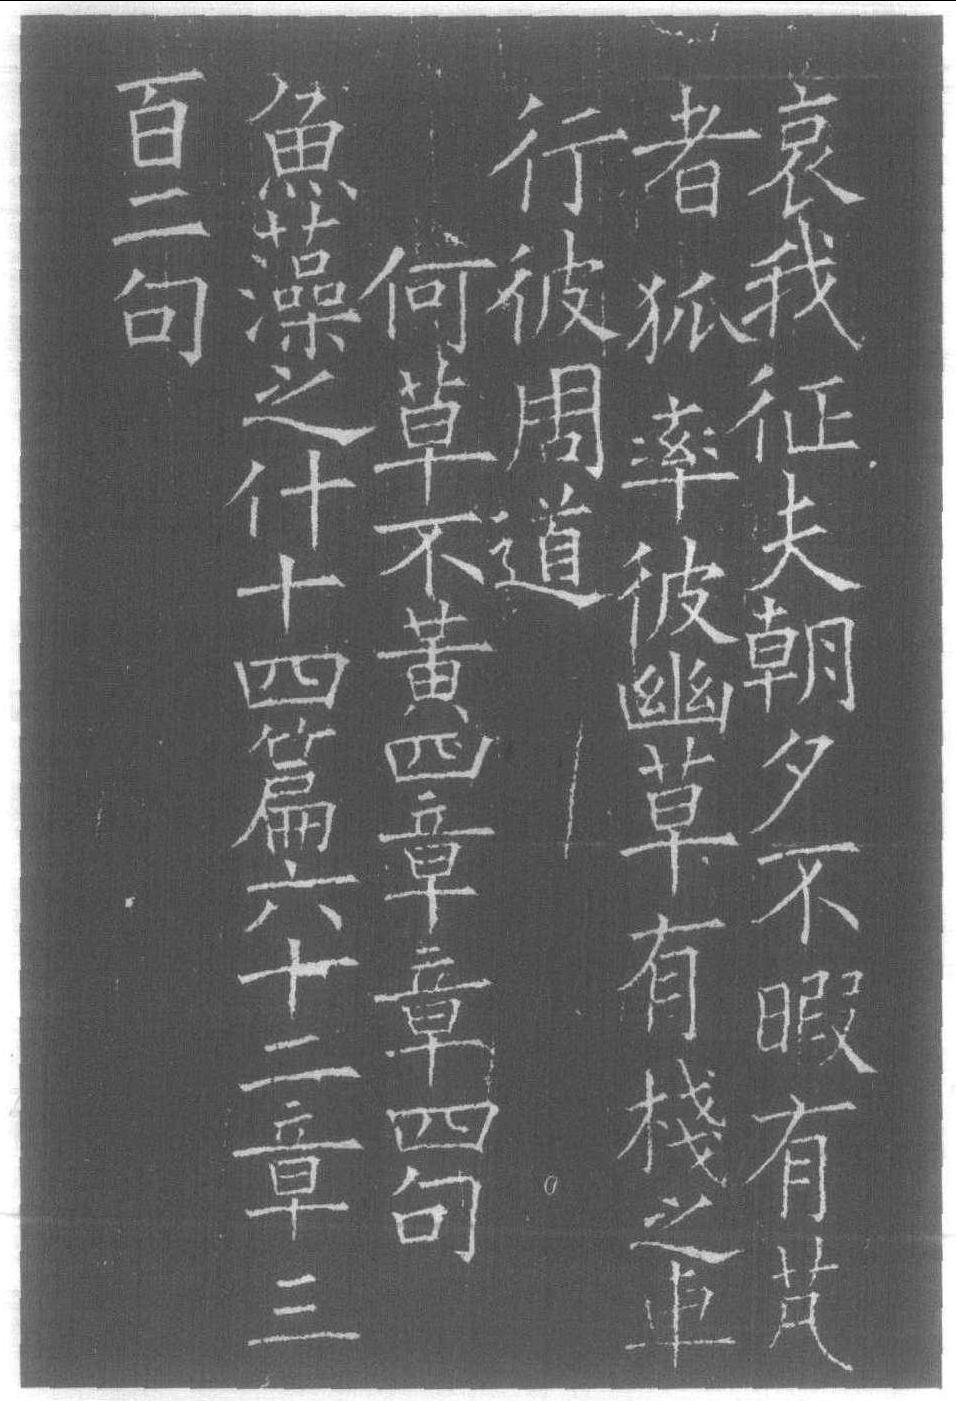 哀我征夫朝夕不暇有芃
者狐率彼幽草有棧之車
行彼周道
何草不黃四章章四句
魚藻之什十四篇六十二章三
百二句